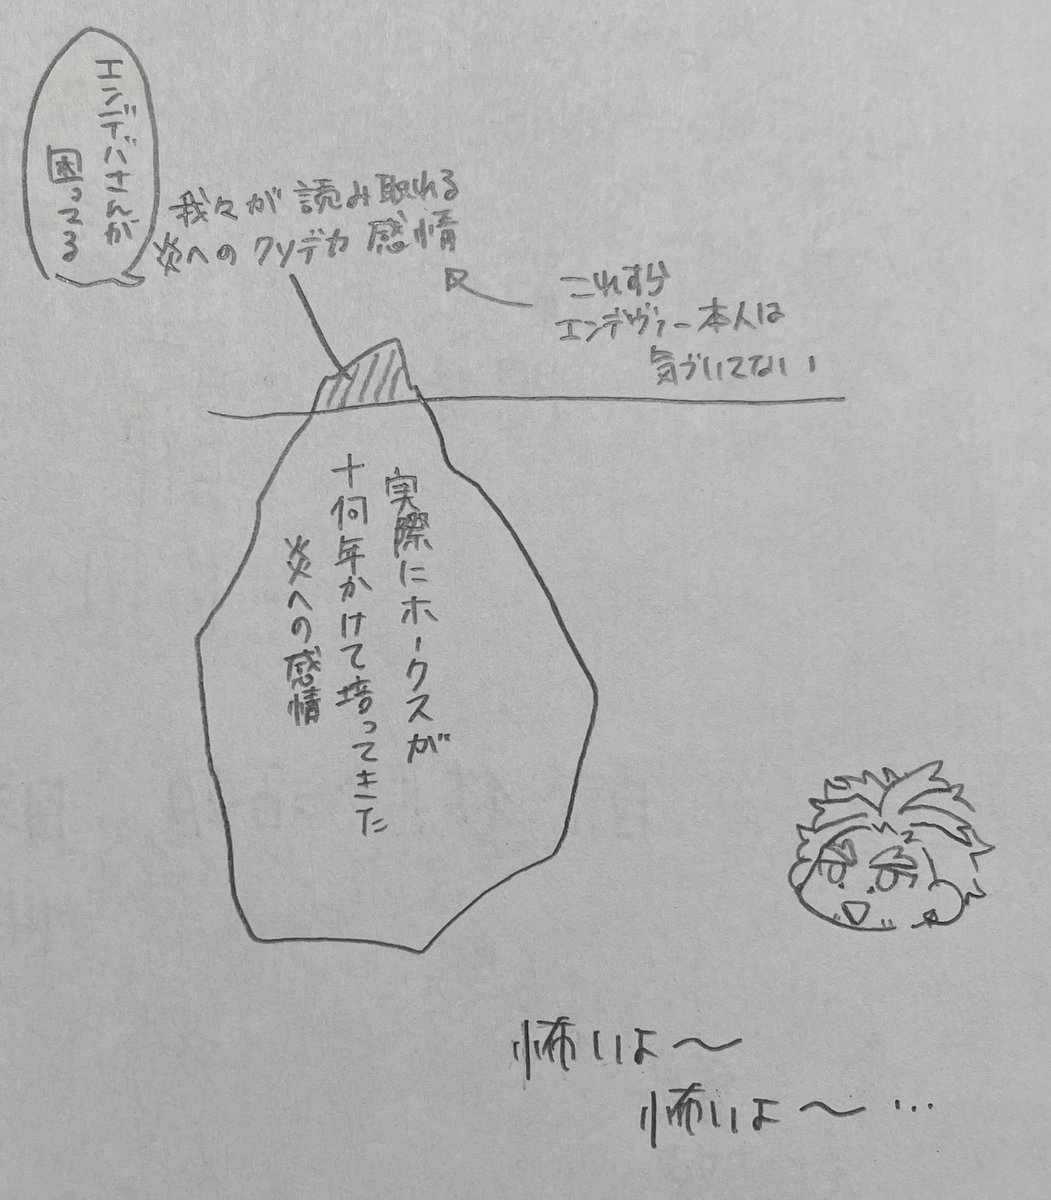 エンデバさんが
困ってる
我々が読み取れる
炎へのクソデカ感情
これすら
エンデヴァー本人は
気づいてない
実際にホークスが
十何年かけて培ってきた
炎への感情
怖いよ〜
怖いよ〜…